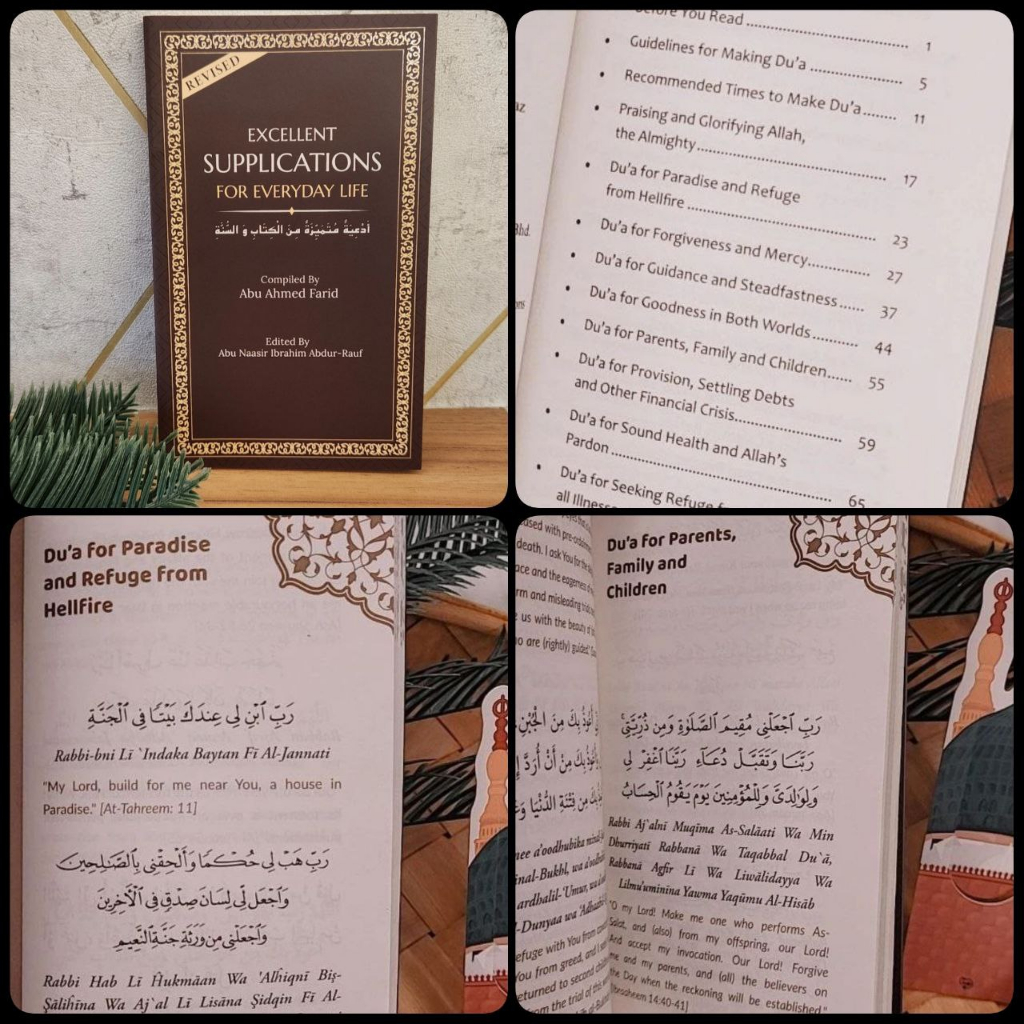 REVISED
EXCELLENT
SUPPLICATIONS
FOR EVERYDAY LIFE
أَدْعِيَةٌ مُتَمَيِّزَةٌ مِنَ الْكِتَابِ وَ السُّنَّةِ
Compiled By
Abu Ahmed Farid
Edited By
Abu Naasir Ibrahim Abdur-Rauf
Before You Read ........ 1
• Guidelines for Making Du'a ........ 5
• Recommended Times to Make Du'a ........ 11
• Praising and Glorifying Allah,
the Almighty ........ 17
• Du'a for Paradise and Refuge
from Hellfire ........ 23
• Du'a for Forgiveness and Mercy ........ 27
• Du'a for Guidance and Steadfastness ...... 37
• Du'a for Goodness in Both Worlds ........ 44
• Du'a for Parents, Family and Children ...... 55
• Du'a for Provision, Settling Debts
and Other Financial Crisis ........ 59
• Du'a for Sound Health and Allah's
Pardon ........ 65
• Du'a for Seeking Refuge
all
Du'a for Paradise
and Refuge from
Hellfire
رَبِّ ٱبْنِ لِى عِندَكَ بَيْتًا فِى ٱلْجَنَّةِ
Rabbi-bni Lī `Indaka Baytan Fī Al-Jannati
"My Lord, build for me near You, a house in
Paradise." [At-Tahreem: 11]
رَبِّ هَبْ لِى حُكْمًا وَأَلْحِقْنِى بِٱلصَّـٰلِحِينَ
وَٱجْعَل لِّى لِسَانَ صِدْقٍ فِى ٱلْـَٔاخِرِينَ
وَٱجْعَلْنِى مِن وَرَثَةِ جَنَّةِ ٱلنَّعِيمِ
Rabbi Hab Lī Ĥukmāan Wa 'Alhiqnī Biş-
Şālihīna Wa Aj`al Lī Lisāna Şidqin Fī Al-
death. I ask You for the
and the eagerness
and misleading
us with the beauty of
are (rightly) guided."
Du'a for Parents,
Family and
Children
رَبِّ ٱجْعَلْنِى مُقِيمَ ٱلصَّلَوٰةِ وَمِن ذُرِّيَّتِى
رَبَّنَا وَتَقَبَّلْ دُعَآءِ رَبَّنَا ٱغْفِرْ لِى
وَلِوَٰلِدَىَّ وَلِلْمُؤْمِنِينَ يَوْمَ يَقُومُ ٱلْحِسَابُ
Rabbi Aj`alnī Muqīma As-Salāati Wa Min
Dhurriyatī Rabbanā Wa Taqabbal Du`ā,
Rabbanā Agfir Lī Wa Liwālidayya Wa
Lilmu'uminīna Yawma Yaqūmu Al-Hisāb
"O my Lord! Make me one who performs As-
Salat, and (also) from my offspring, our Lord!
And accept my invocation. Our Lord! Forgive
me and my parents, and (all) the believers on
the Day when the reckoning will be established."
[Ibraaheem 14:40-41]